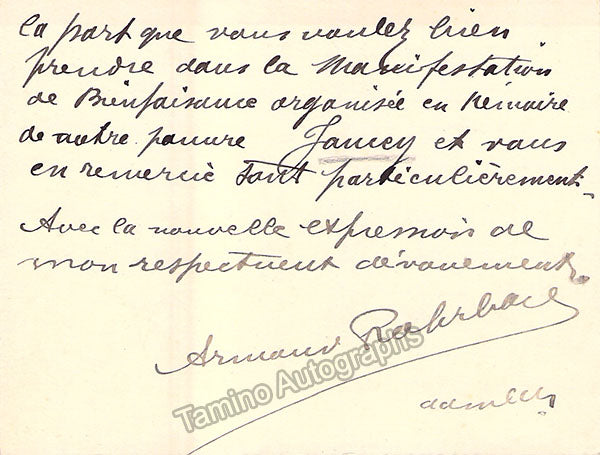 la part que vous voulez bien
prendre dans la Manifestation
de Bienfaisance organisée en Mémoire
de notre pauvre Jancey et vous
en remercie tout particulièrement.
Avec la nouvelle expression de
mon respectueux dévouement.
Armand
Tamino Autographs